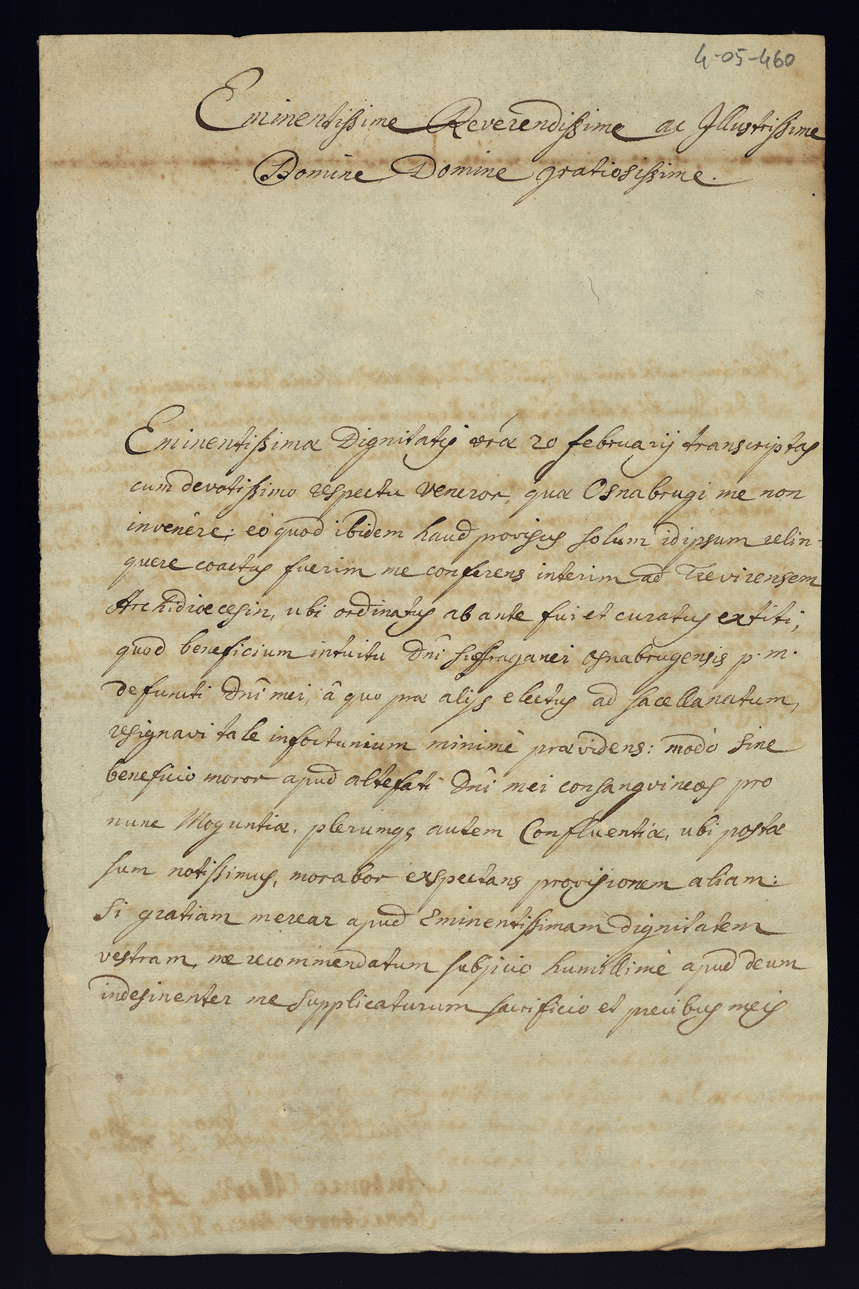 4-05-460
Eminentissime Reverendissime ac Illustrissime
Domine Domine gratiosissime.
Eminentissimæ Dignitatis vr̄æ 20 februarij transcriptas
cum devotissimo respectu veneror, quæ Osnabrugi me non
invenêre; eò quod ibidem haud provisus solum idipsum relin-
quere coactus fuerim me conferens interim ad Trevirensem
Archidiœcesin, ubi ordinatus ab ante fui et curatus extiti,
quod beneficium intuitu Dn̄i suffraganei osnabrugensis p. m.
defuncti Dn̄i mei, â quo præ alijs electus ad sacellanatum,
resignavi tale infortunium minimè prævidens: modò sine
beneficio moror apud altefati Dn̄i mei consangvineos pro
nunc Moguntiæ, plerumq; autem Confluentiæ, ubi postæ
sum notissimus, morabor exspectans provisionem aliam:
si gratiam merear apud Eminentissimam dignitatem
vestram, me recommendatum subjicio humillimè apud deum
indesinenter me supplicaturum sacrificio et precibus meis